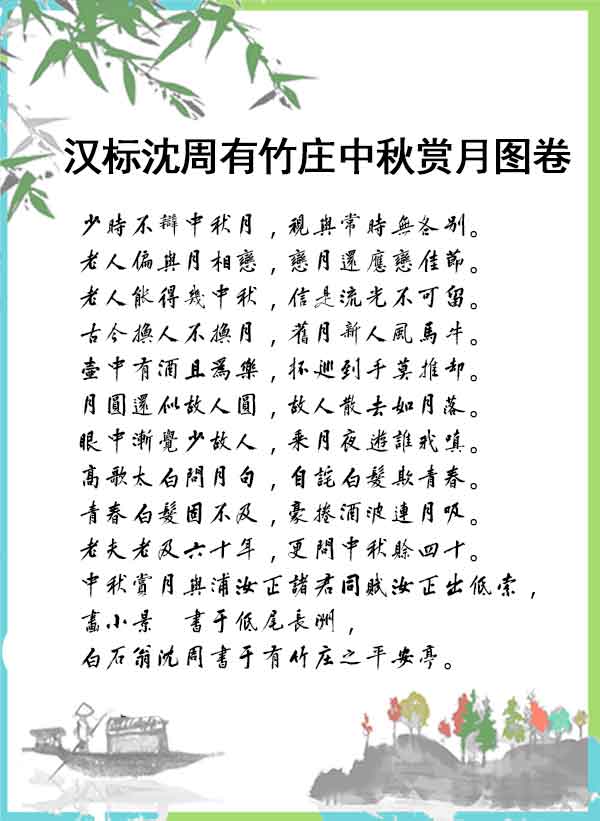 汉标沈周有竹庄中秋赏月图卷
少時不辯中秋月，視與常時無各别。
老人偏與月相戀，戀月還應戀佳節。
老人能得幾中秋，信是流光不可留。
古今換人不換月，舊月新人風馬牛。
壺中有酒且爲樂，杯巡到手莫推却。
月圓還似故人圓，故人散去如月落。
眼中漸覺少故人，乘月夜遊誰我嗔。
高歌太白問月句，自詫白髮欺青春。
青春白髮固不及，豪捲酒波連月吸。
老夫老及六十年，更問中秋賒四十。
中秋賞月與浦汝正諸君同賦汝正出低索，
畵小景　書于低尾長洲，
白石翁沈周書于有竹庄之平安亭。